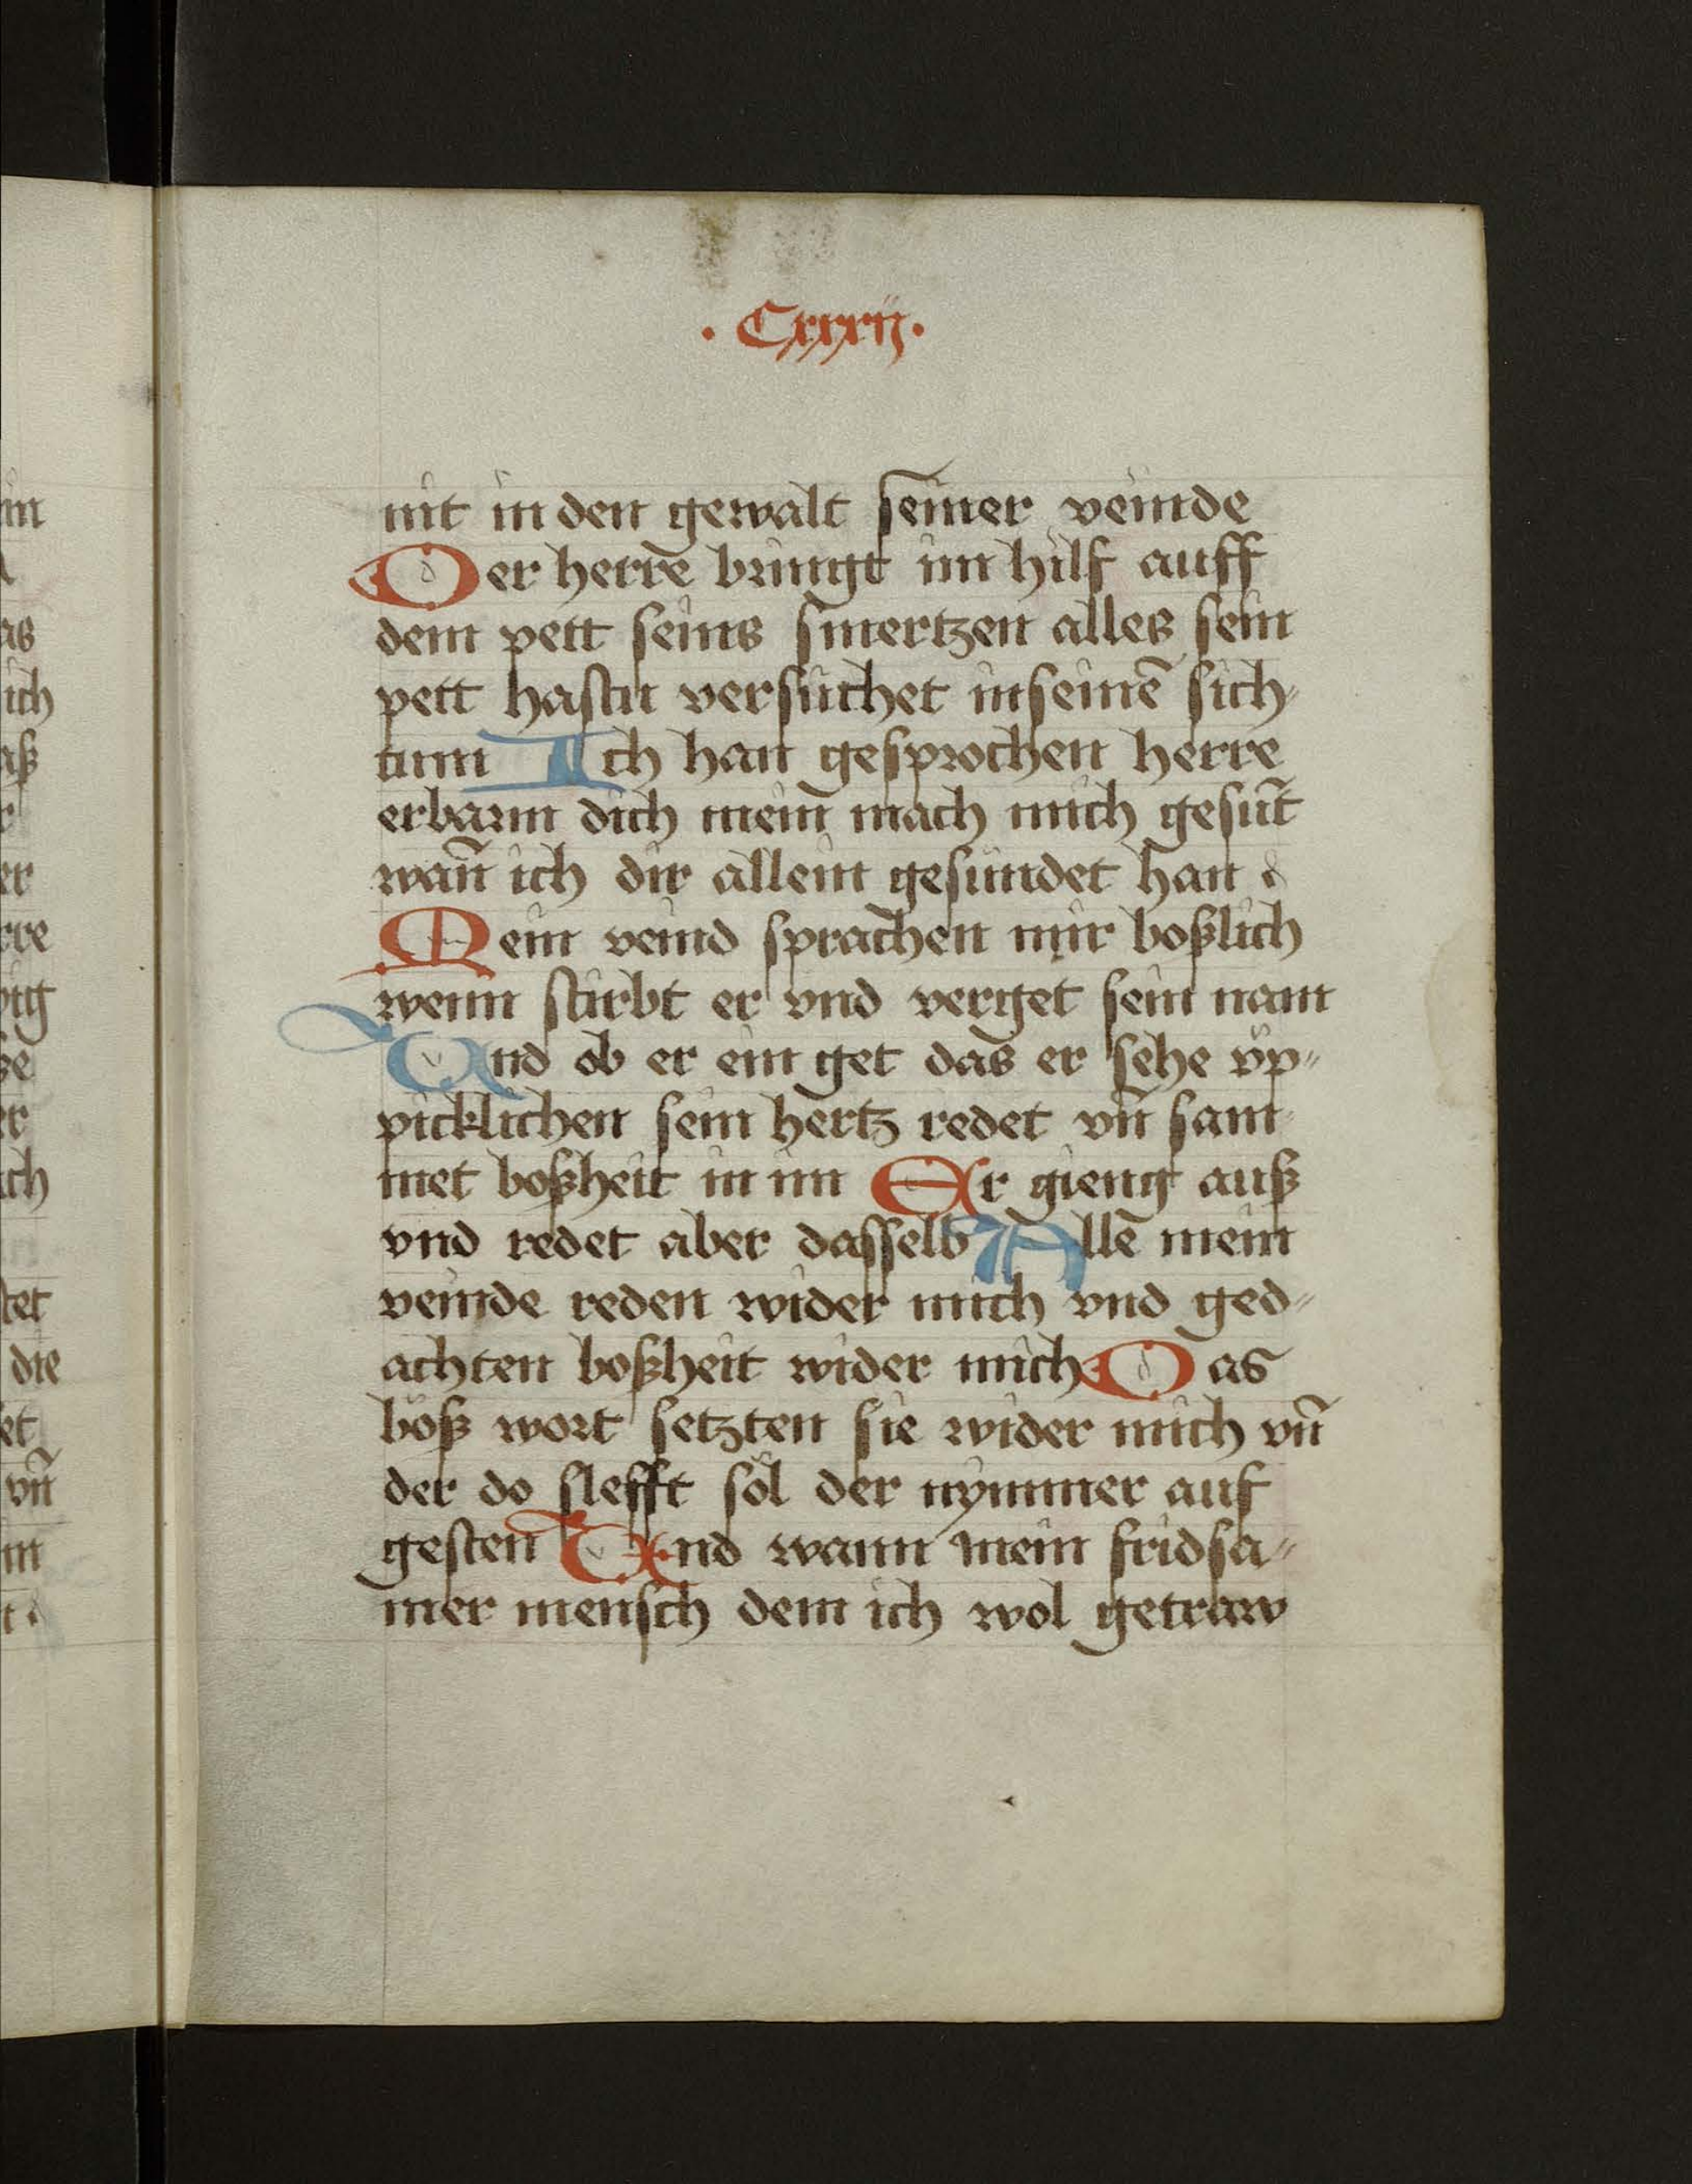 . Cxxxij .
nit in den gewalt seiner veinde
Der herre bringt im hilf auff
dem pett seins smertzen alles sein
pett hastu versuchet in seinē sich
tum Ich han gesprochen herre
erbarm dich mein mach mich gesūt
wañ ich dir allein gesundet han
Mein veind sprachen mir boßlich
wenn stirbt er vnd verget sein nam
Vnd ob er ein get das er sehe vp⸗
picklichen sein hertz redet vñ sam
met boßheit in im Er gieng auß
vnd redet aber dasselb Allē mein
veinde reden wider mich vnd ged⸗
achten boßheit wider mich Das
böß wort setzten sie wider mich vñ
der do slefft sol der nymmer auf
gesten Vnd wann mein fridsa⸗
mer mensch dem ich wol getraw